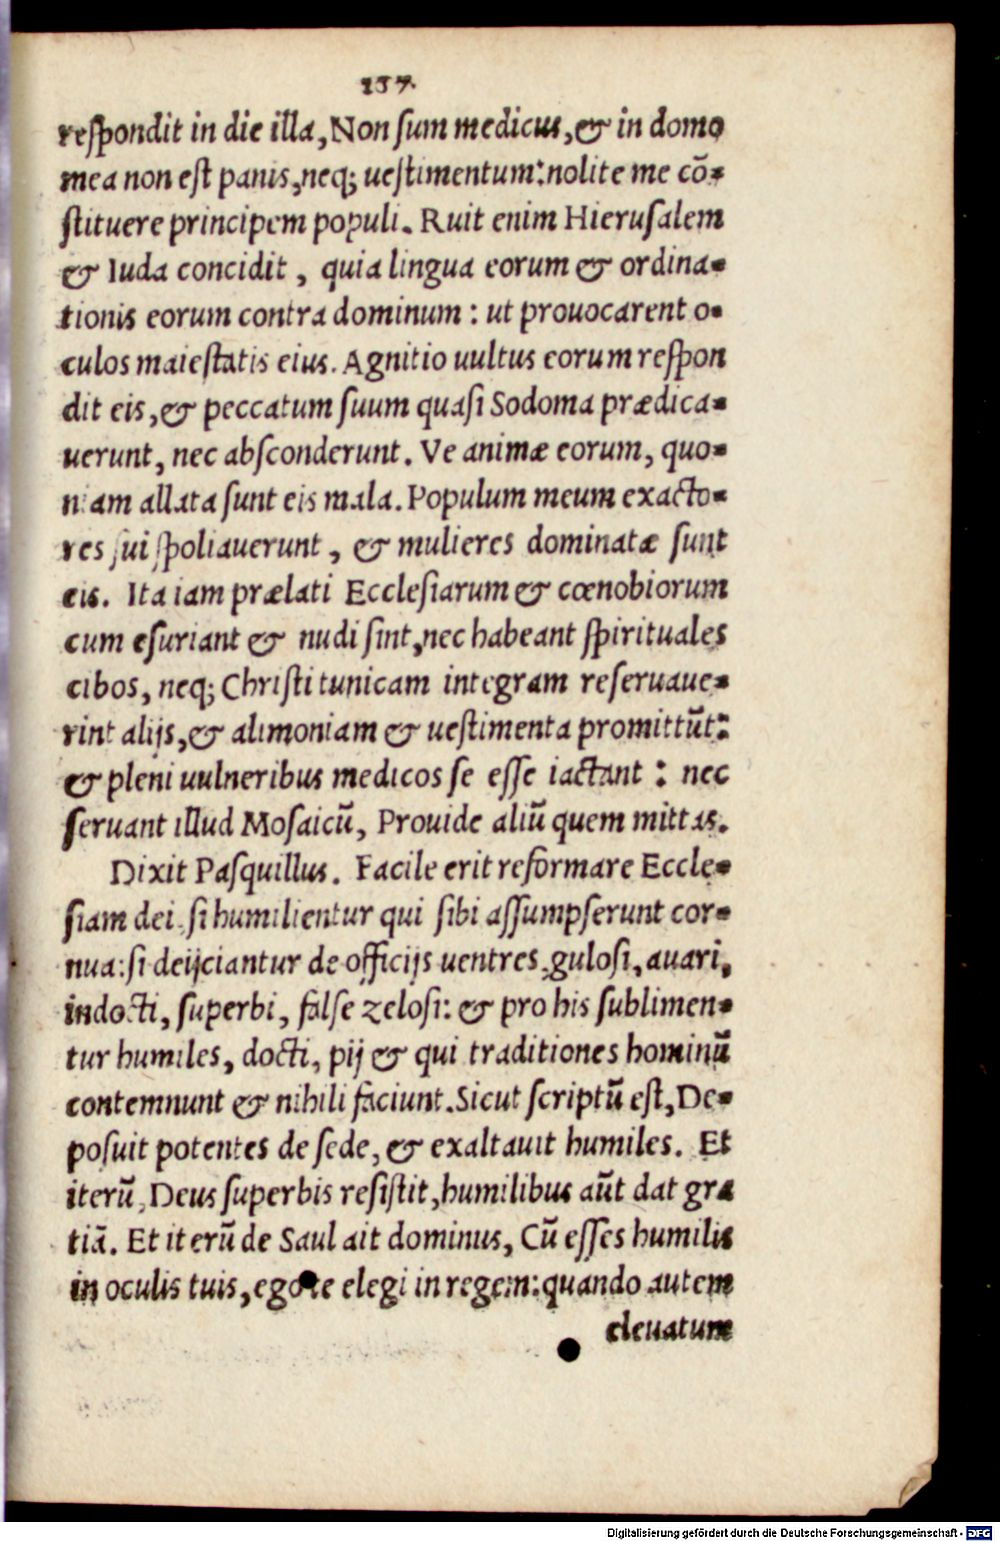 157.
respondit in die illa, Non sum medicus, & in domo
mea non est panis, neq; uestimentum: nolite me cō-
stituere principem populi. Ruit enim Hierusalem
& Iuda concidit, quia lingua eorum & ordina-
tionis eorum contra dominum: ut prouocarent o-
culos maiestatis eius. Agnitio uultus eorum respon
dit eis, & peccatum suum quasi Sodoma prædica-
uerunt, nec absconderunt. Ve animæ eorum, quo-
niam allata sunt eis mala. Populum meum exacto-
res sui spoliauerunt, & mulieres dominatæ sunt
eis. Ita iam prælati Ecclesiarum & cœnobiorum
cum esuriant & nudi sint, nec habeant spirituales
cibos, neq; Christi tunicam integram reseruaue-
rint alijs, & alimoniam & uestimenta promittūt:
& pleni uulneribus medicos se esse iactant: nec
seruant illud Mosaicū, Prouide aliū quem mittas.
Dixit Pasquillus. Facile erit reformare Eccle-
siam dei, si humilientur qui sibi assumpserunt cor-
nua: si deijciantur de officijs uentres, gulosi, auari,
indocti, superbi, false zelosi: & pro his sublimen-
tur humiles, docti, pij & qui traditiones hominū
contemnunt & nihili faciunt. Sicut scriptū est, De-
posuit potentes de sede, & exaltauit humiles. Et
iterū, Deus superbis resistit, humilibus aūt dat gra
tiā. Et iterū de Saul ait dominus, Cū esses humilis
in oculis tuis, ego te elegi in regem: quando autem
eleuatum
Digitalisierung gefördert durch die Deutsche Forschungsgemeinschaft - DFG